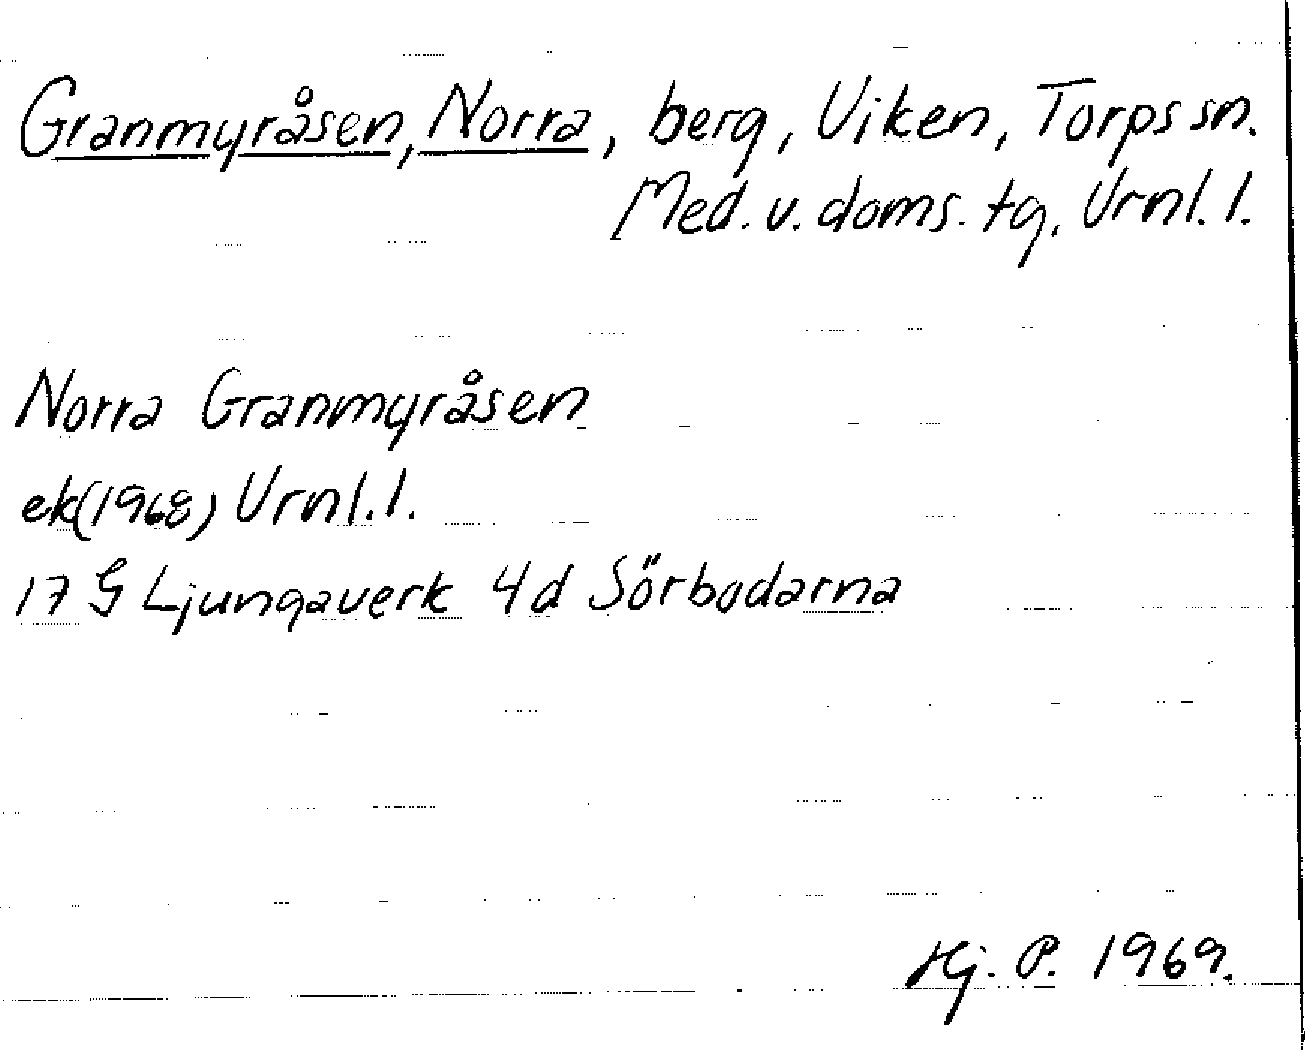 Granmyråsen, Norra, berg, Viken, Torps sn.
Med. v. doms. tg. Vrnl. l.
Norra Granmyråsen
ek(1968) Vrnl. l.
17 G Ljungaverk 4d Sörbodarna
Hj. P. 1969.